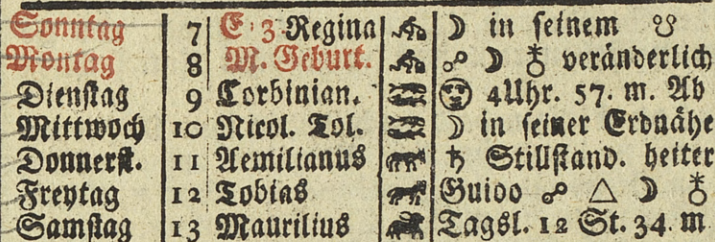 Sonntag 7 E 3 Regina ☽ in ſeinem ☋
Montag 8 M. Geburt. ☍ ☽ ♁ veränderlich
Dienſtag 9 Corbinian. 4Uhr. 57. m. Ab
Mittwoch 10 Nicol. Tol. ☽ in ſeiner Erdnähe
Donnerſt. 11 Aemilianus ♄ Stillſtand. heiter
Freytag 12 Tobias Guido ☍ △ ☽ ♁
Samſtag 13 Maurilius Tagsl. 12 St. 34. m